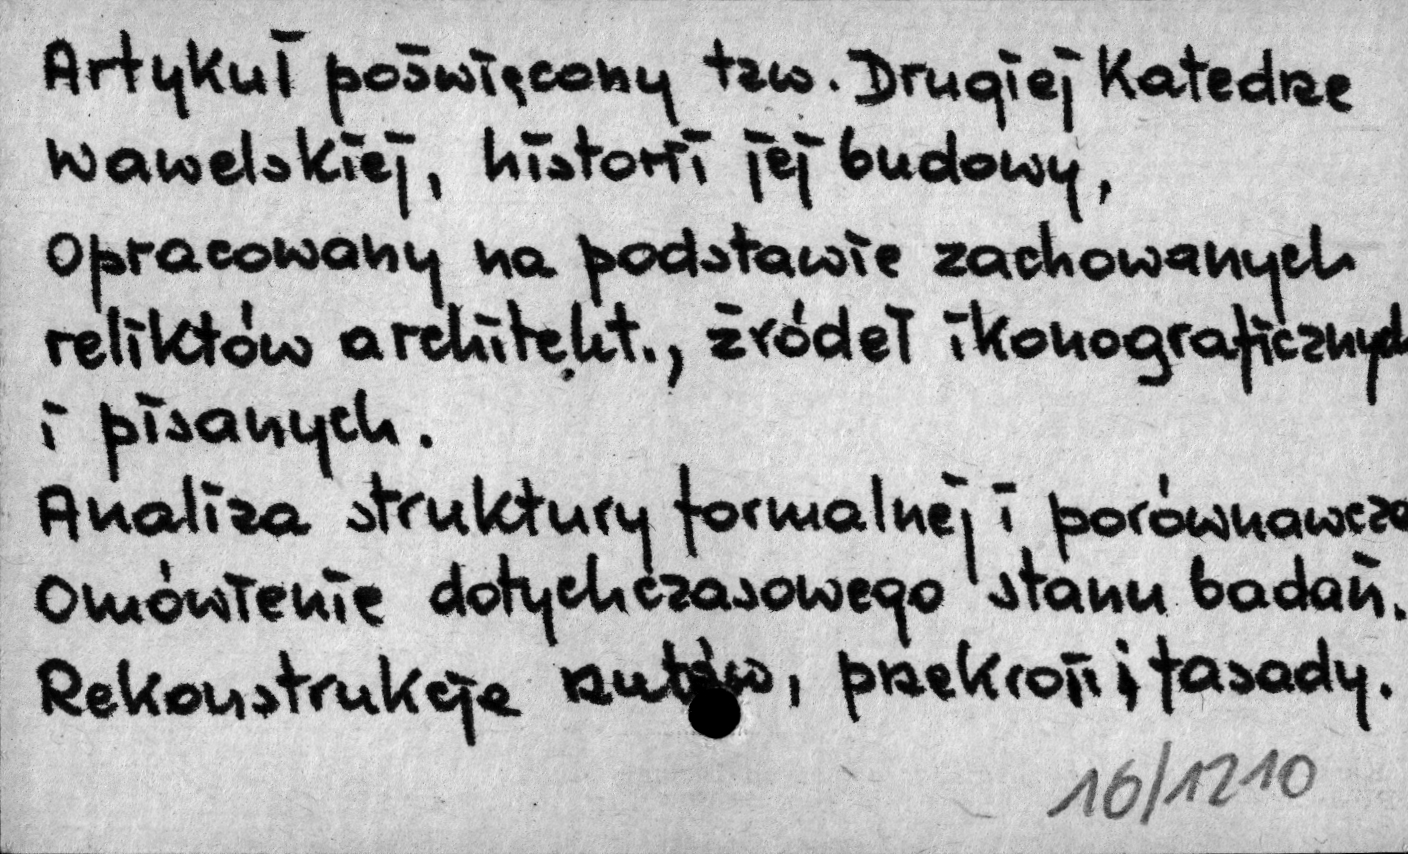 Artykuł poświęcony tzw. Drugiej Katedrze
wawelskiej, historii jej budowy,
opracowany na podstawie zachowanych
reliktów architekt., źródeł ikonograficznych
i pisanych.
Analiza struktury formalnej i porównawcza
Omówienie dotychczasowego stanu badań.
Rekonstrukcje rzutów, przekroji i fasady.
16/1210